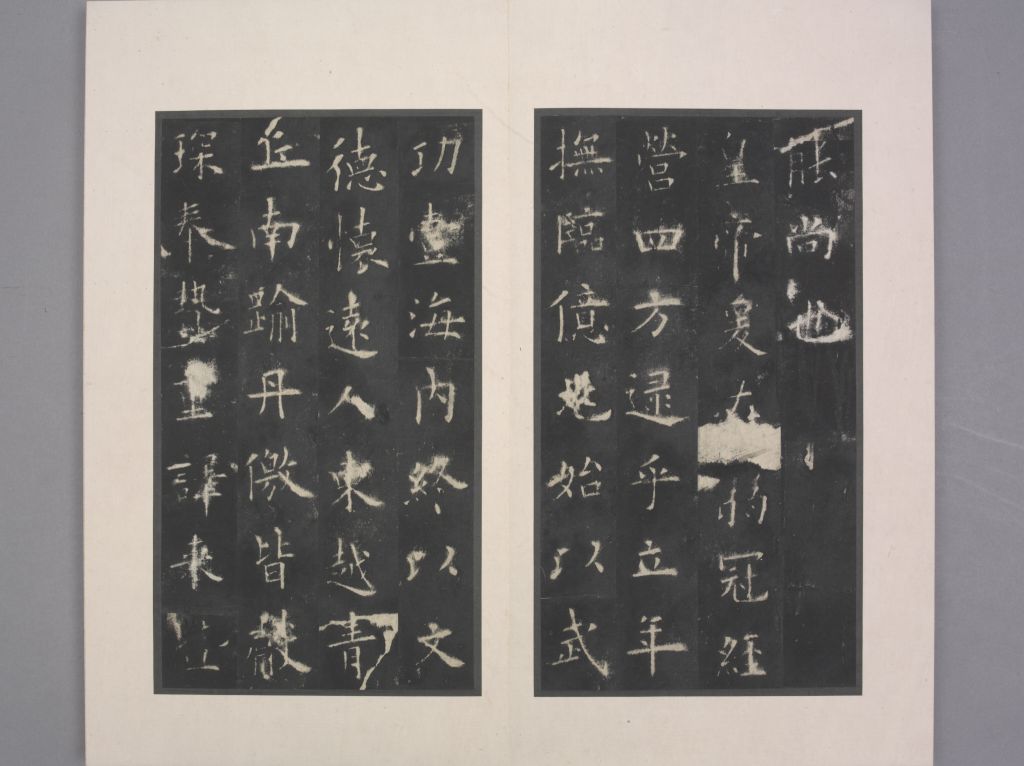 能尚也
皇帝爰在弱冠經
營四方逮乎立年
撫臨億兆始以武
功壹海内終以文
德懷遠人東越青
丘南踰丹徼皆獻
琛奉贄重譯來